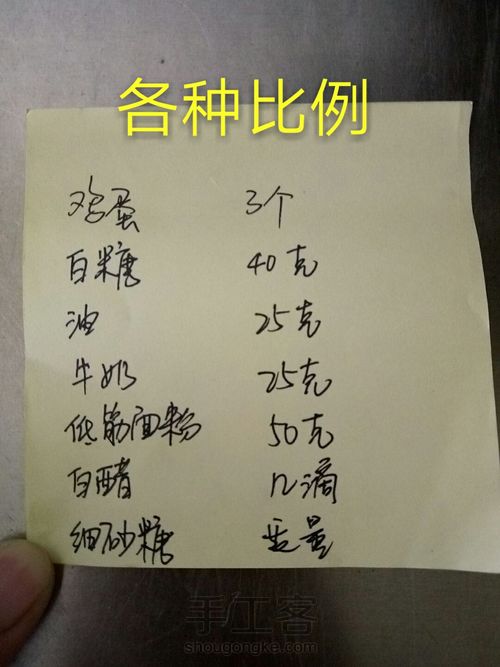 各种比例
鸡蛋 3个
白糖 40克
油 25克
牛奶 25克
低筋面粉 50克
白醋 几滴
细砂糖 适量
手工客
shougongke.com